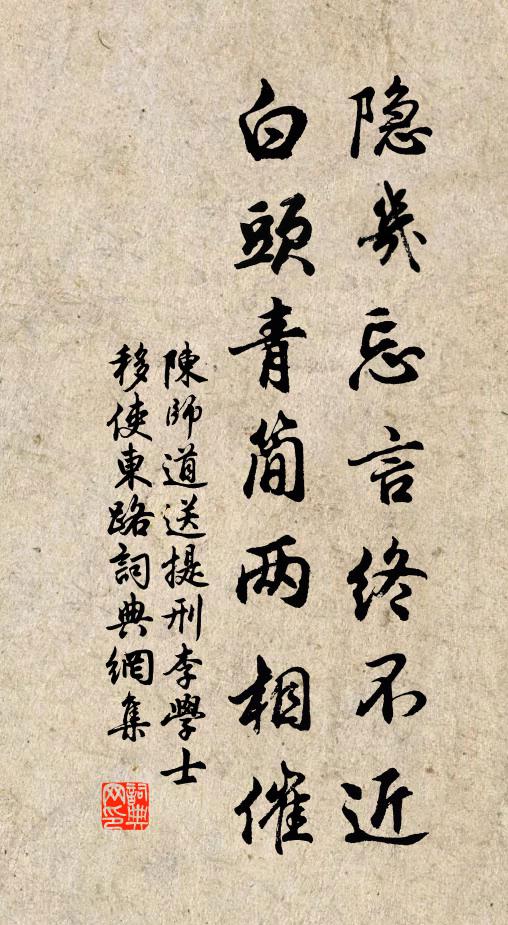 隐幾忘言终不近
白頭青简两相催
陳師道送提刑李學士
移使東路詞典網集
詞典
网印